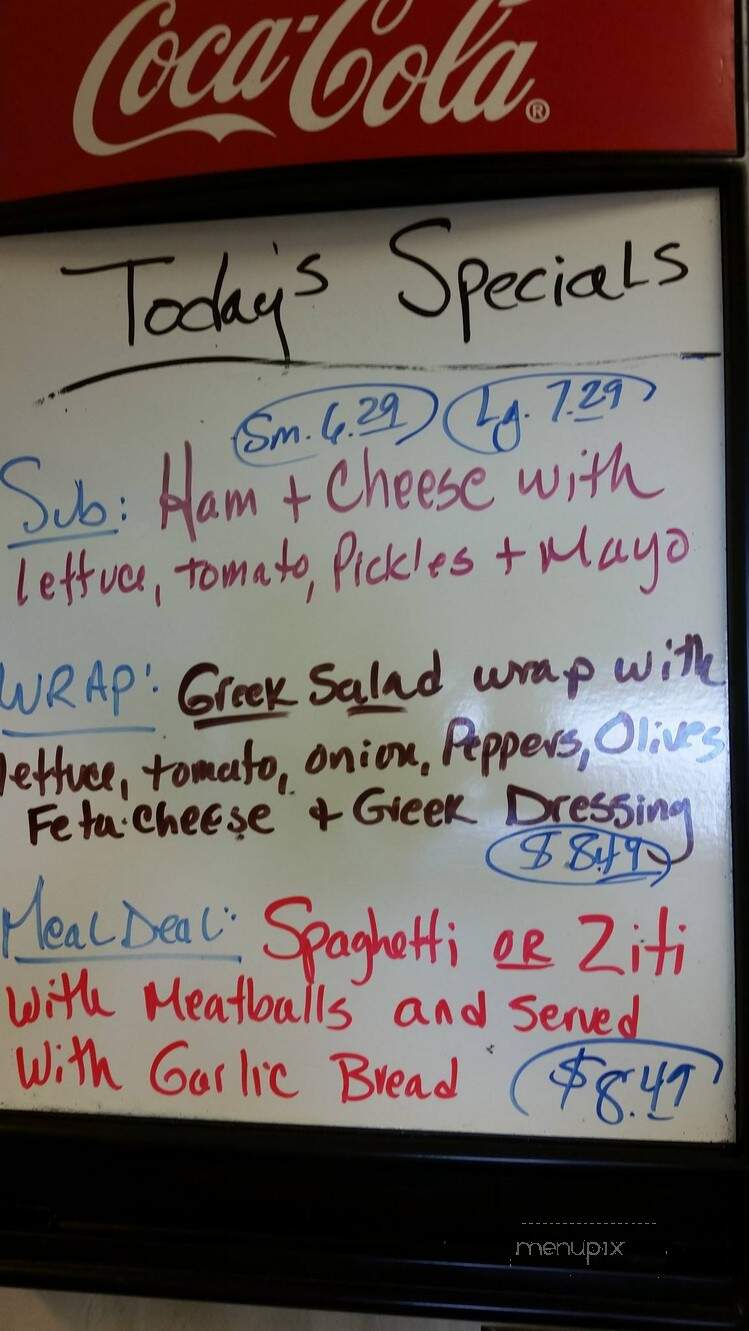 Coca-Cola®
Today's Specials
Sm. 6.29 Lg. 7.29
Sub: Ham + Cheese with
lettuce, tomato, Pickles + Mayo
WRAP: Greek Salad wrap with
lettuce, tomato, onion, Peppers, Olives
Feta cheese + Greek Dressing
$8.49
Meal Deal: Spaghetti OR Ziti
With Meatballs and Served
With Garlic Bread $8.49
menupix